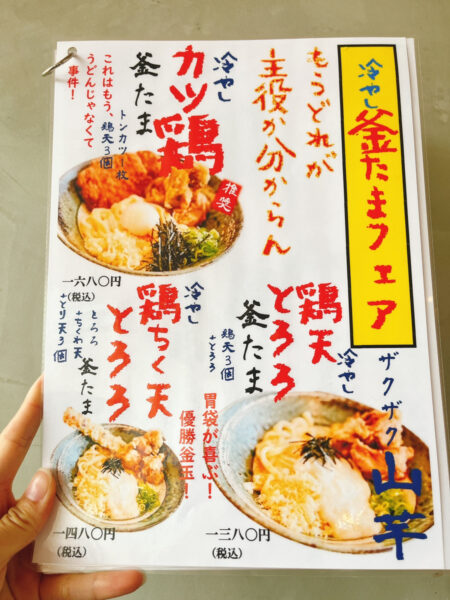 冷やし釜たまフェア
もうどれが
主役か分からん
冷やし
カツ鶏
釜たま
トンカツ一枚
鶏天3個
これはもう、
うどんじゃなくて
事件！
推奨
一六八〇円
(税込)
ザクザク山芋
冷やし
鶏天
とろろ
釜たま
鶏天3個
+とろろ
胃袋が喜ぶ！
優勝釜玉！
一三八〇円
(税込)
冷やし
鶏ちく天
とろろ
釜たま
とろろ
+ちくわ天
+とり天3個
一四八〇円
(税込)